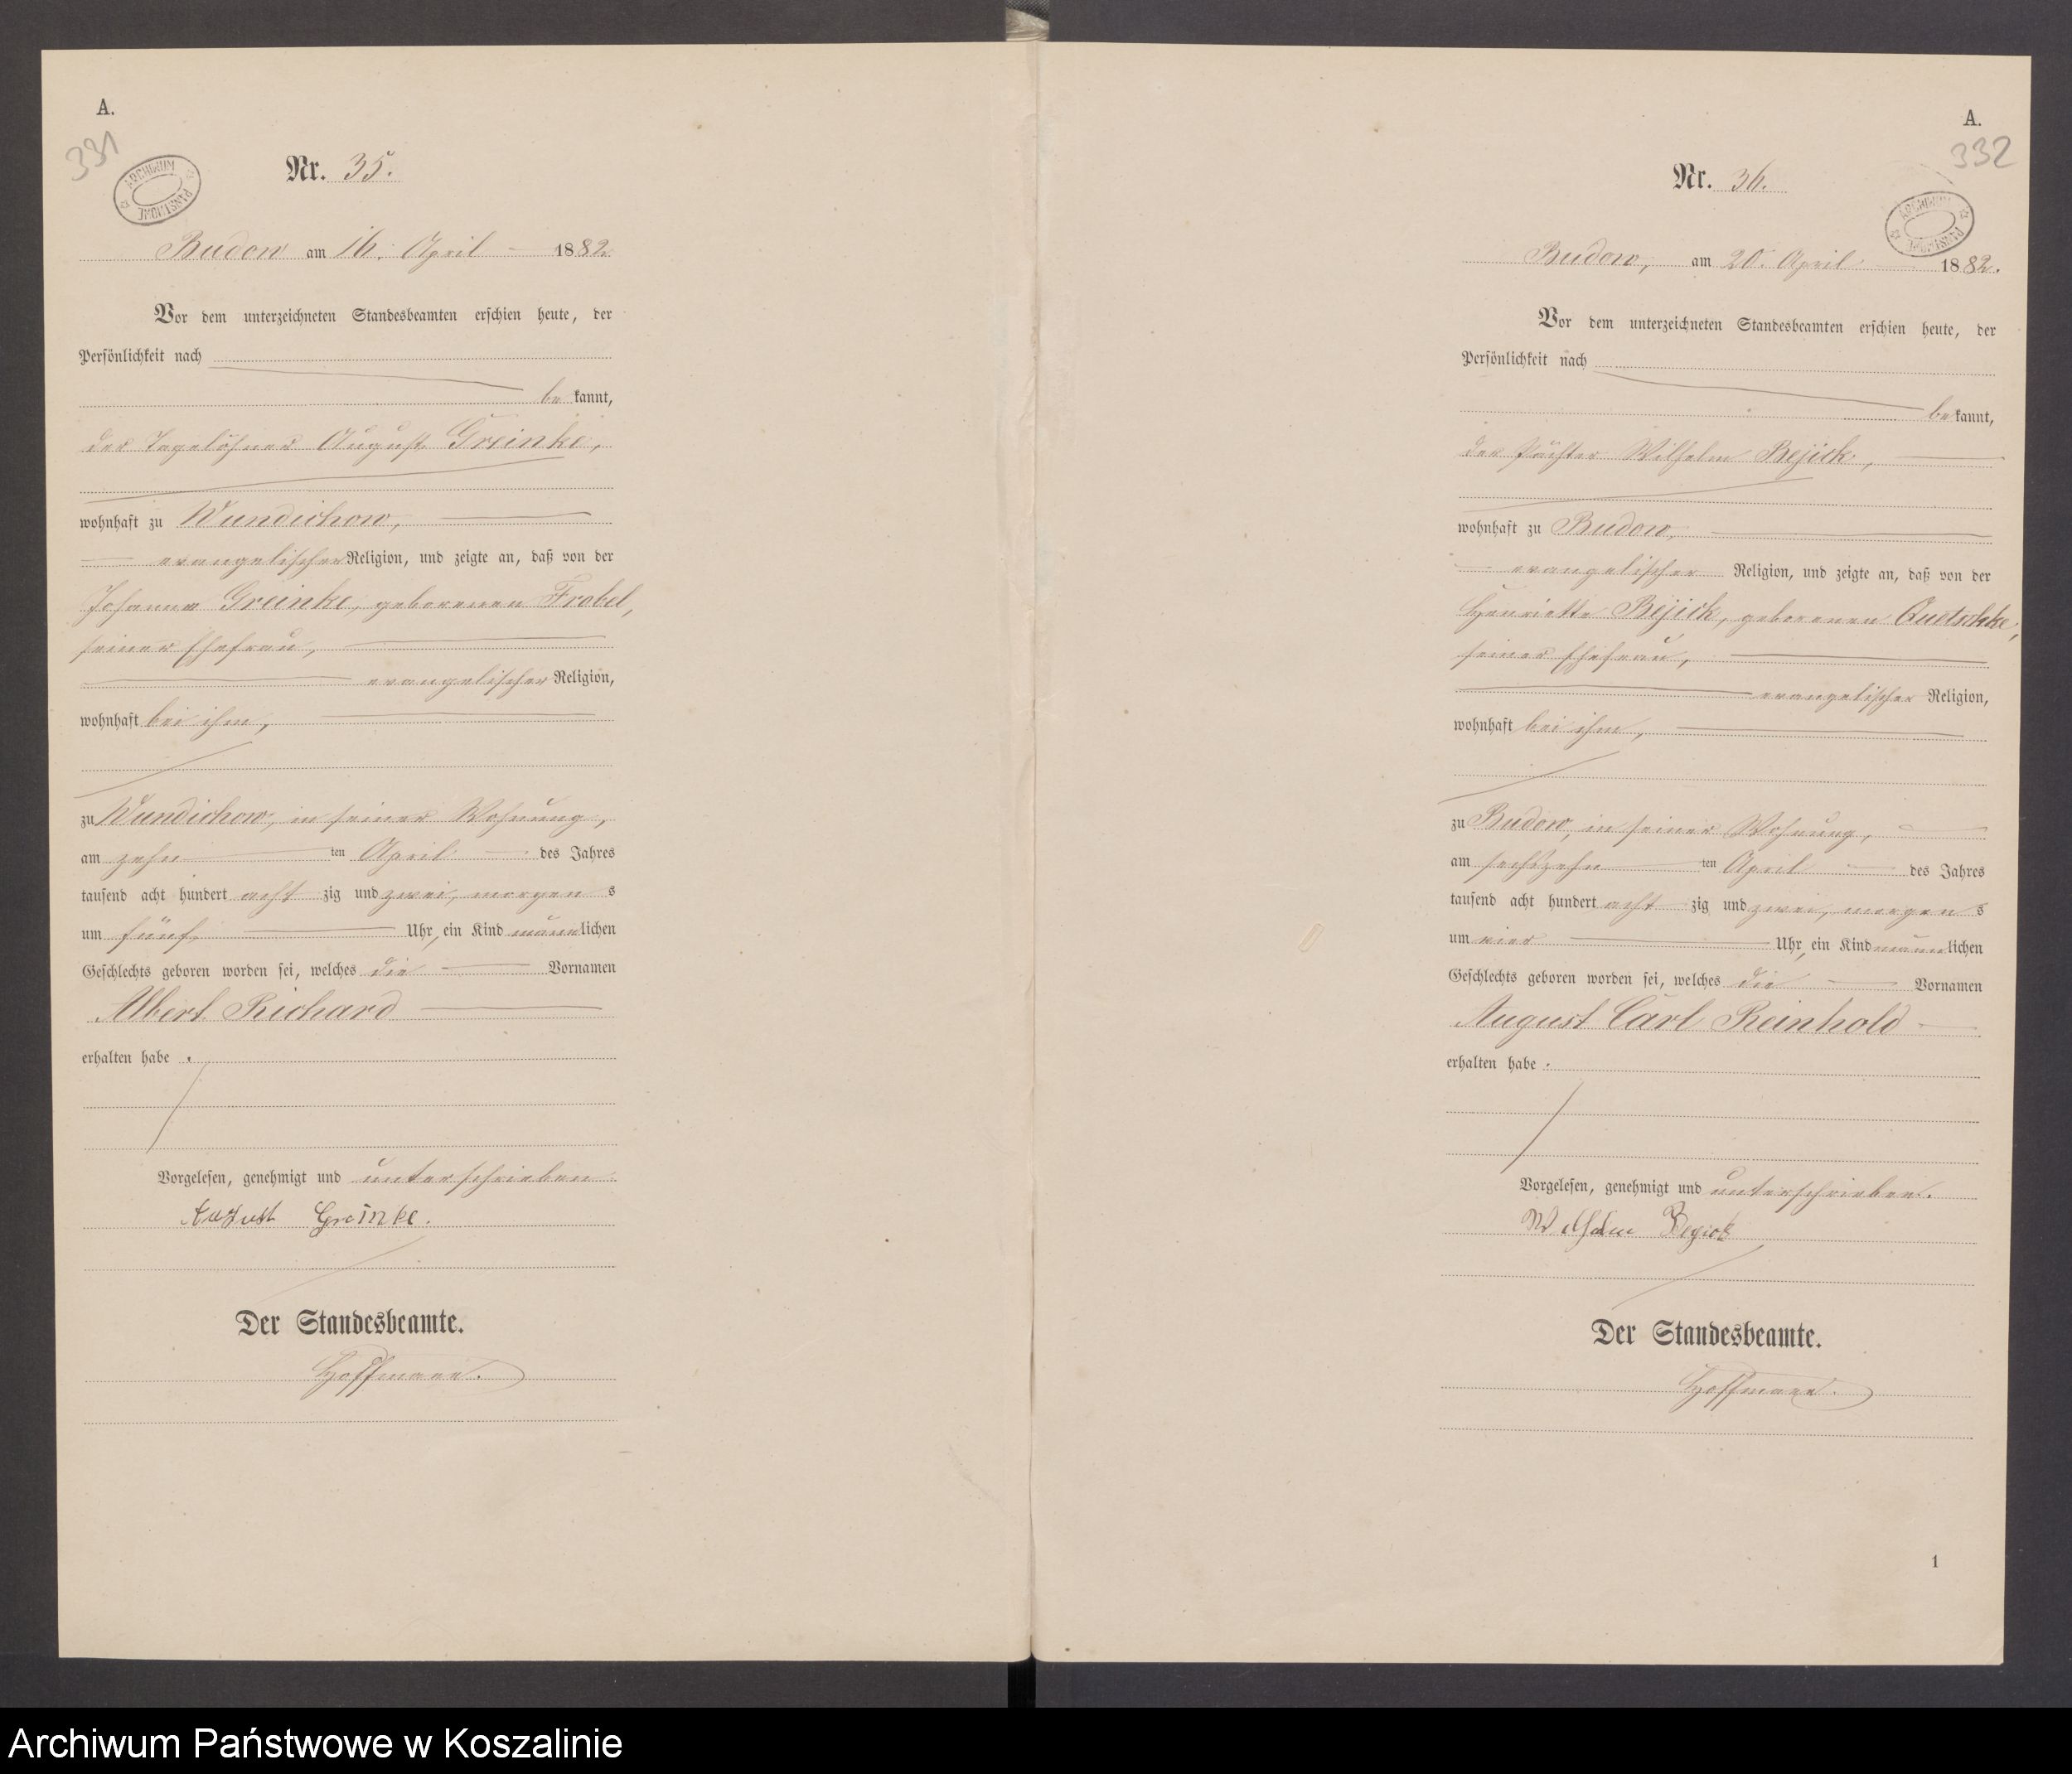 A.
331
ARCHIWUM PAŃSTWOWE
Nr. 35.
Budow am 16. April 1882
Vor dem unterzeichneten Standesbeamten erschien heute, der
Persönlichkeit nach
bekannt,
der Tagelöhner August Greinke,
wohnhaft zu Wundichow,
evangelischer Religion, und zeigte an, daß von der
Johanna Greinke, geborenen Frobel,
seiner Ehefrau,
evangelischer Religion,
wohnhaft bei ihm,
zu Wundichow, in seiner Wohnung,
am zehn ten April des Jahres
tausend acht hundert acht zig und zwei, morgens
um fünf Uhr, ein Kind männlichen
Geschlechts geboren worden sei, welches die Vornamen
Albert Richard
erhalten habe.
Vorgelesen, genehmigt und unterschrieben
August Greinke.
Der Standesbeamte.
Hoffmann.
A.
332
ARCHIWUM PAŃSTWOWE
Nr. 36.
Budow, am 20. April 1882.
Vor dem unterzeichneten Standesbeamten erschien heute, der
Persönlichkeit nach
bekannt,
der Pächter Wilhelm Bejick,
wohnhaft zu Budow,
evangelischer Religion, und zeigte an, daß von der
Henriette Bejick, geborenen Quetschke,
seiner Ehefrau,
evangelischer Religion,
wohnhaft bei ihm,
zu Budow, in seiner Wohnung,
am sechszehn ten April des Jahres
tausend acht hundert acht zig und zwei, morgens
um vier Uhr, ein Kind männlichen
Geschlechts geboren worden sei, welches die Vornamen
August Carl Reinhold
erhalten habe.
Vorgelesen, genehmigt und unterschrieben.
Wilhelm Begick
Der Standesbeamte.
Hoffmann.
1
Archiwum Państwowe w Koszalinie